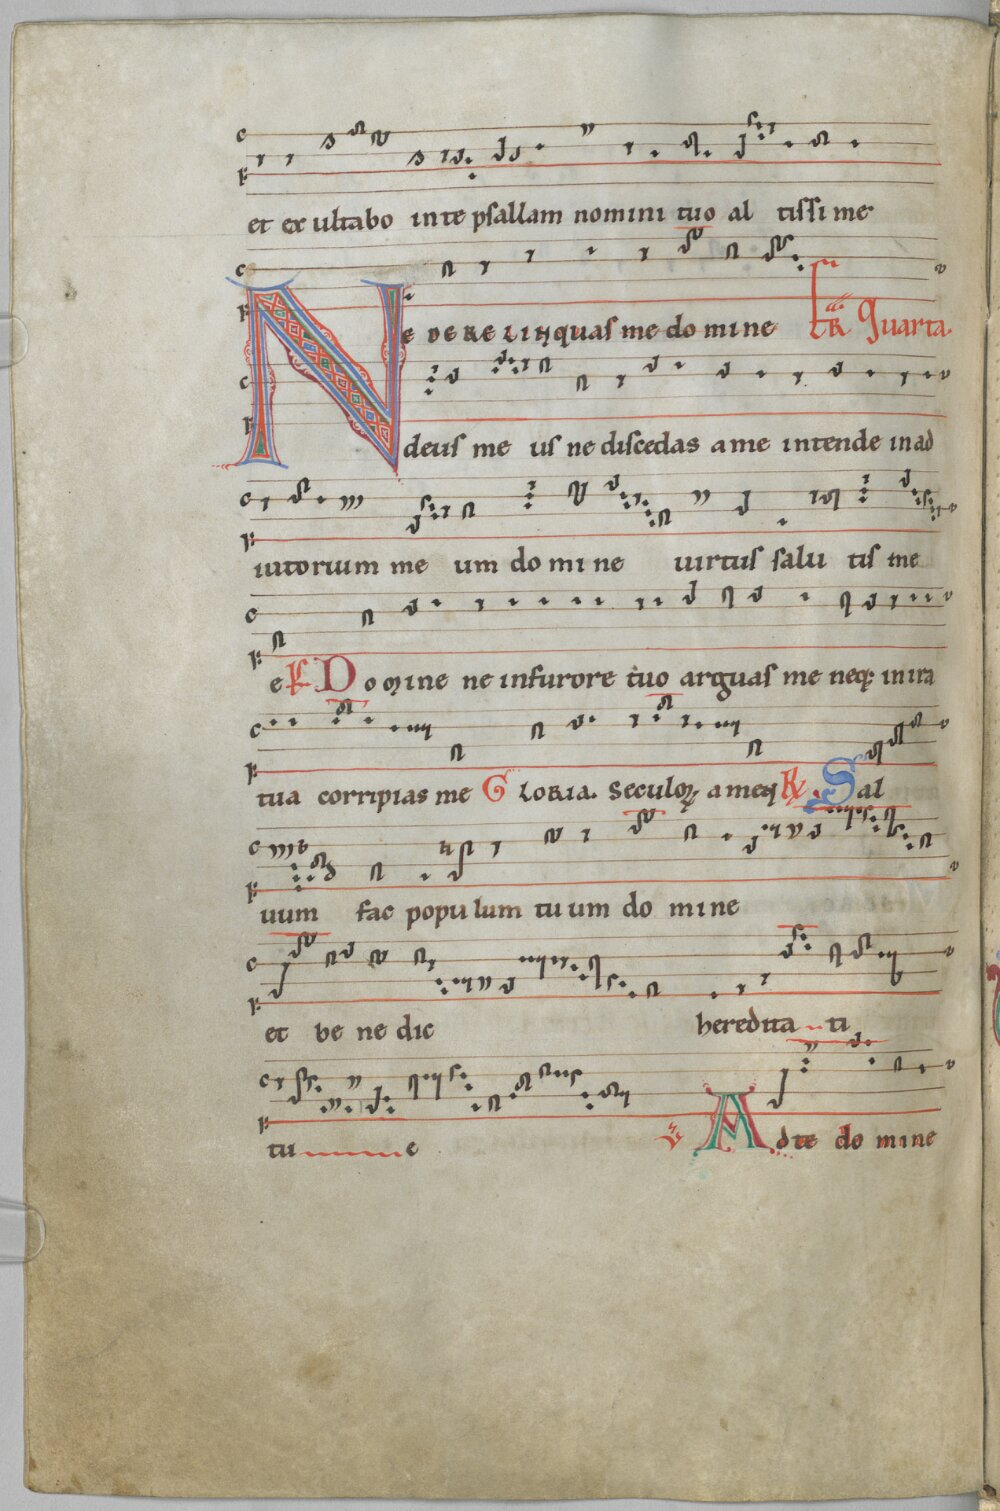 et ex ultabo in te psallam nomini tuo al tissi me
NE DERELINquas me do mine FER Quarta.
deus me us ne discedas a me intende in ad
iutorium me um do mi ne uirtus salu tis me
e Ps Domine ne in furore tuo arguas me neq; in ira
tua corripias me GLORIA. Seculoꝝ amen R. Sal
uum fac populum tuum do mine
et be ne dic heredita ti
tu e V Adte do mine